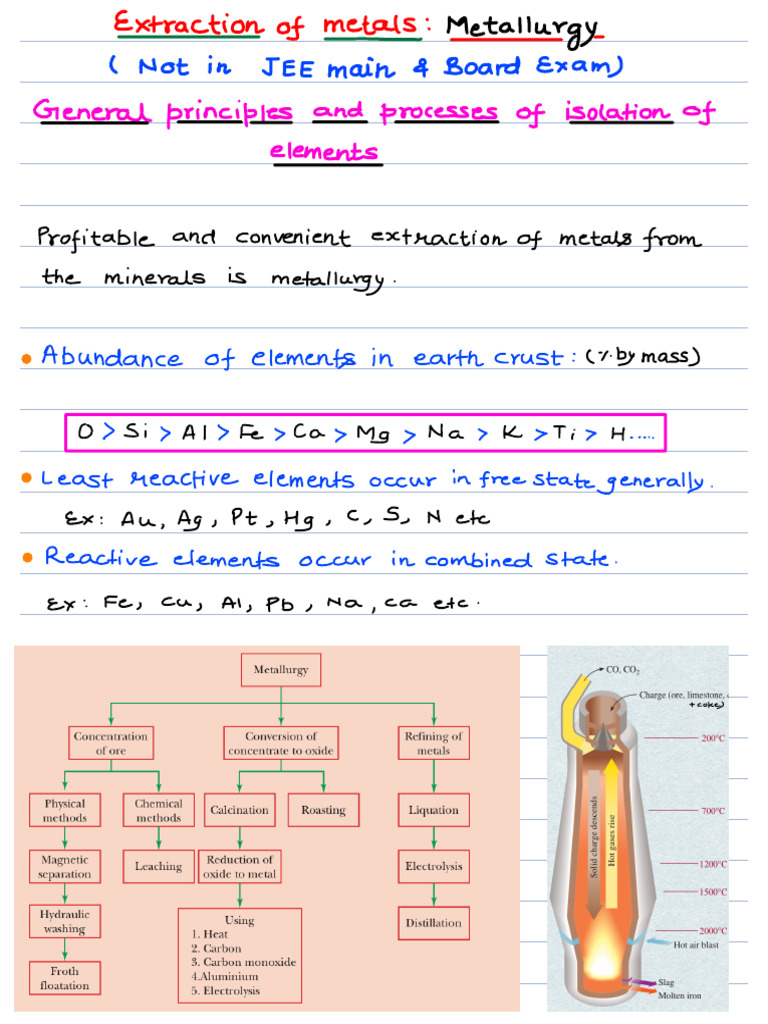 Extraction of metals: Metallurgy
( Not in JEE main & Board Exam)
General principles and processes of isolation of
elements
Profitable and convenient extraction of metals from
the minerals is metallurgy.
• Abundance of elements in earth crust: (% by mass)
O > Si > Al > Fe > Ca > Mg > Na > K > Ti > H.....
• Least reactive elements occur in free state generally.
Ex: Au, Ag, Pt, Hg, C, S, N etc
• Reactive elements occur in combined state.
Ex: Fe, Cu, Al, Pb, Na, Ca etc.
Metallurgy
Concentration
of ore
Conversion of
concentrate to oxide
Refining of
metals
Physical
methods
Chemical
methods
Calcination
Roasting
Liquation
Magnetic
separation
Leaching
Reduction of
oxide to metal
Electrolysis
Hydraulic
washing
Using
1. Heat
2. Carbon
3. Carbon monoxide
4.Aluminium
5. Electrolysis
Distillation
Froth
floatation
CO, CO₂
Charge (ore, limestone,
+ coke)
200°C
700°C
1200°C
1500°C
2000°C
Solid charge descends
Hot gases rise
Hot air blast
Slag
Molten iron